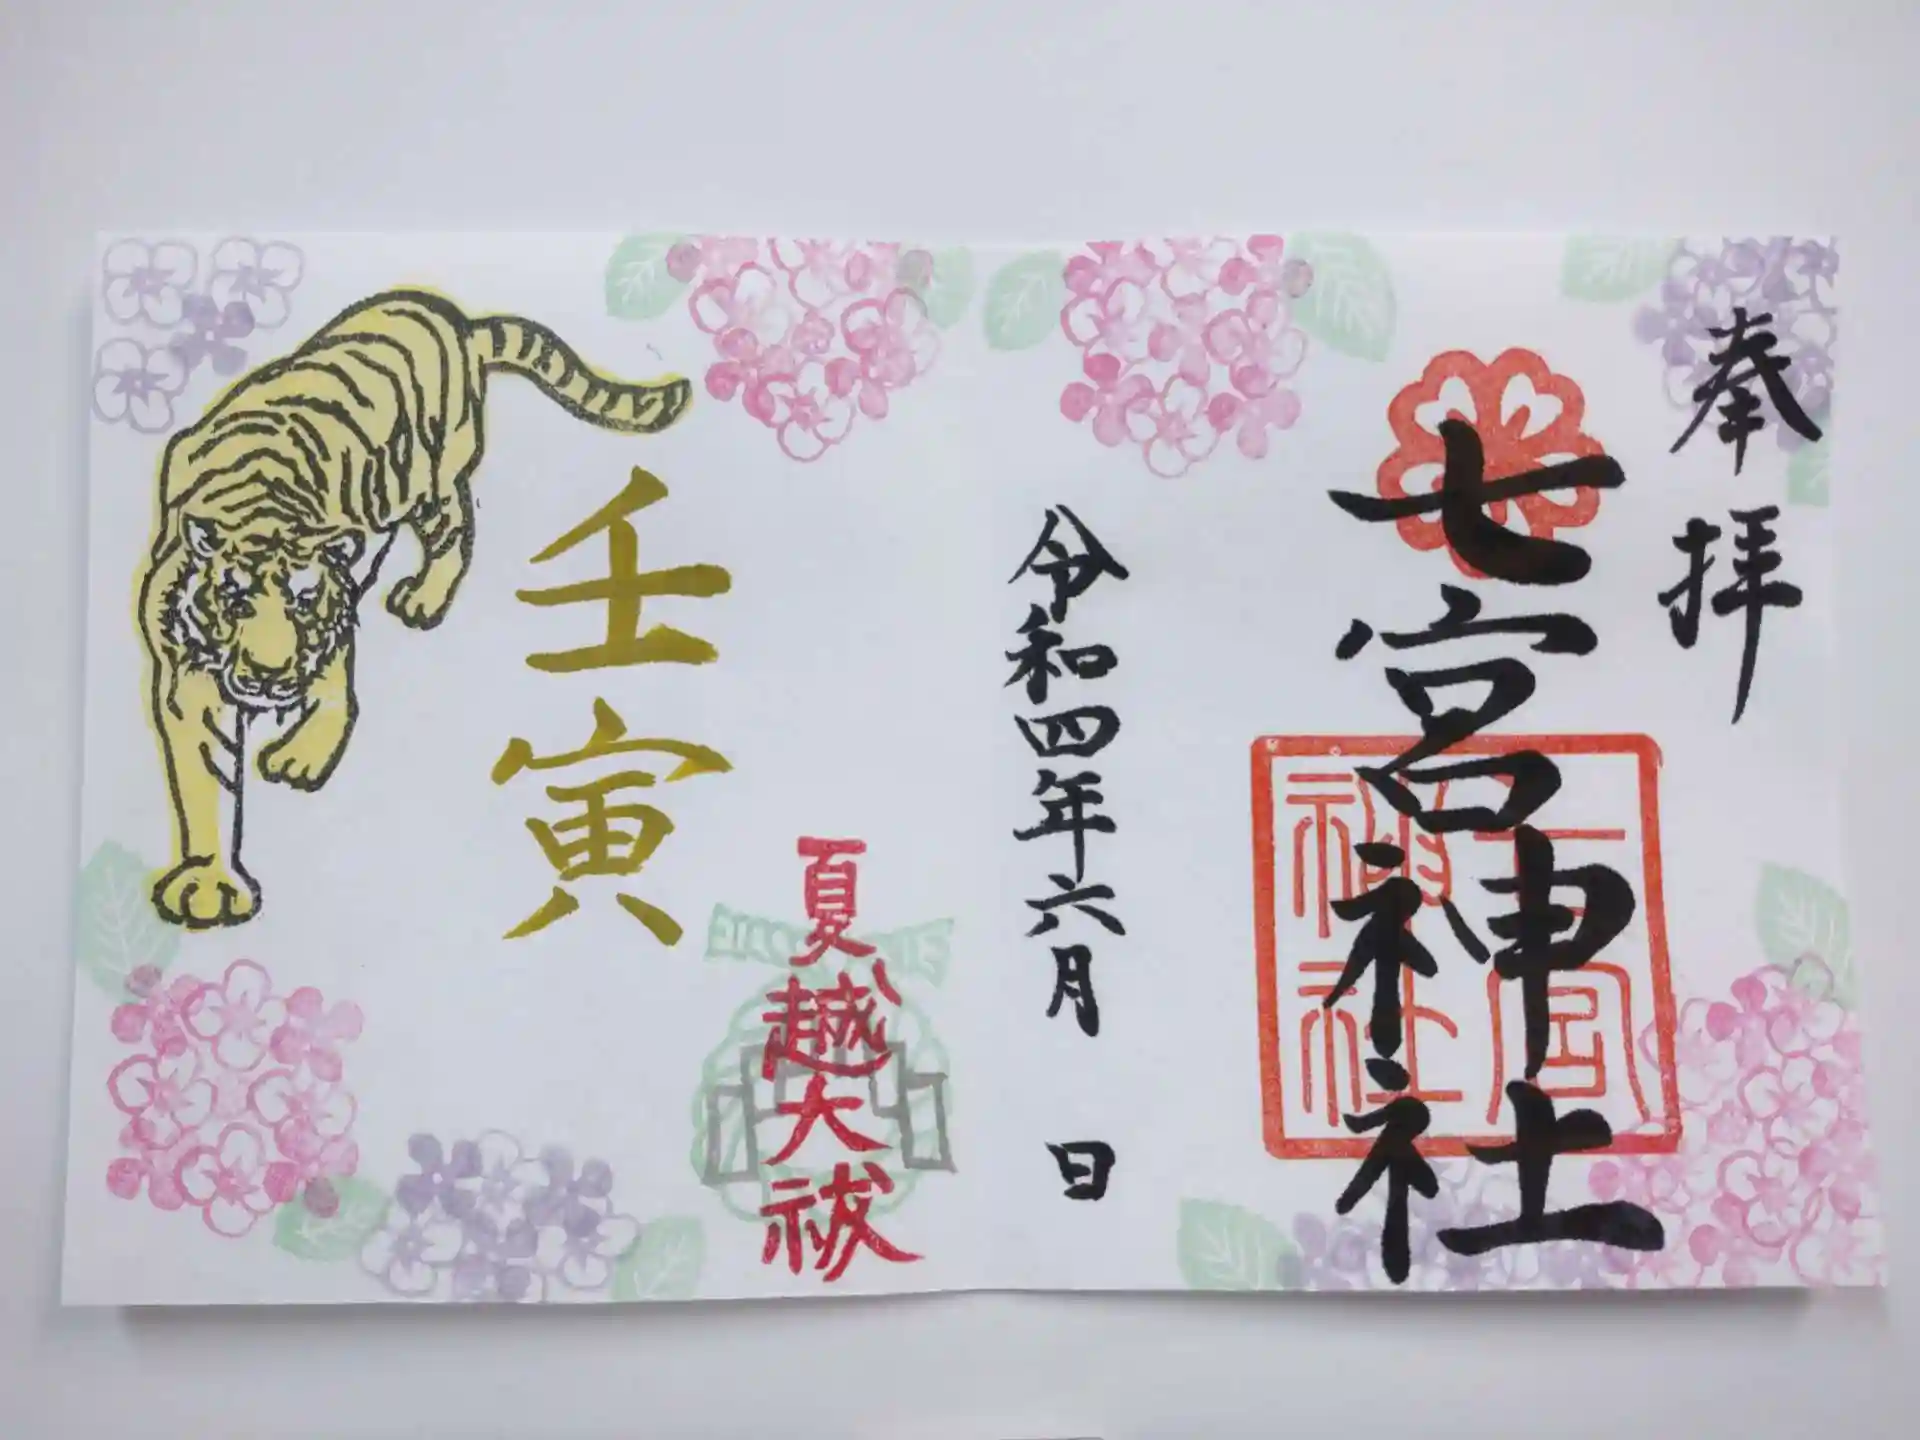 奉拝
七宮神社
七宮
神社
令和四年六月 日
壬寅
夏越大祓